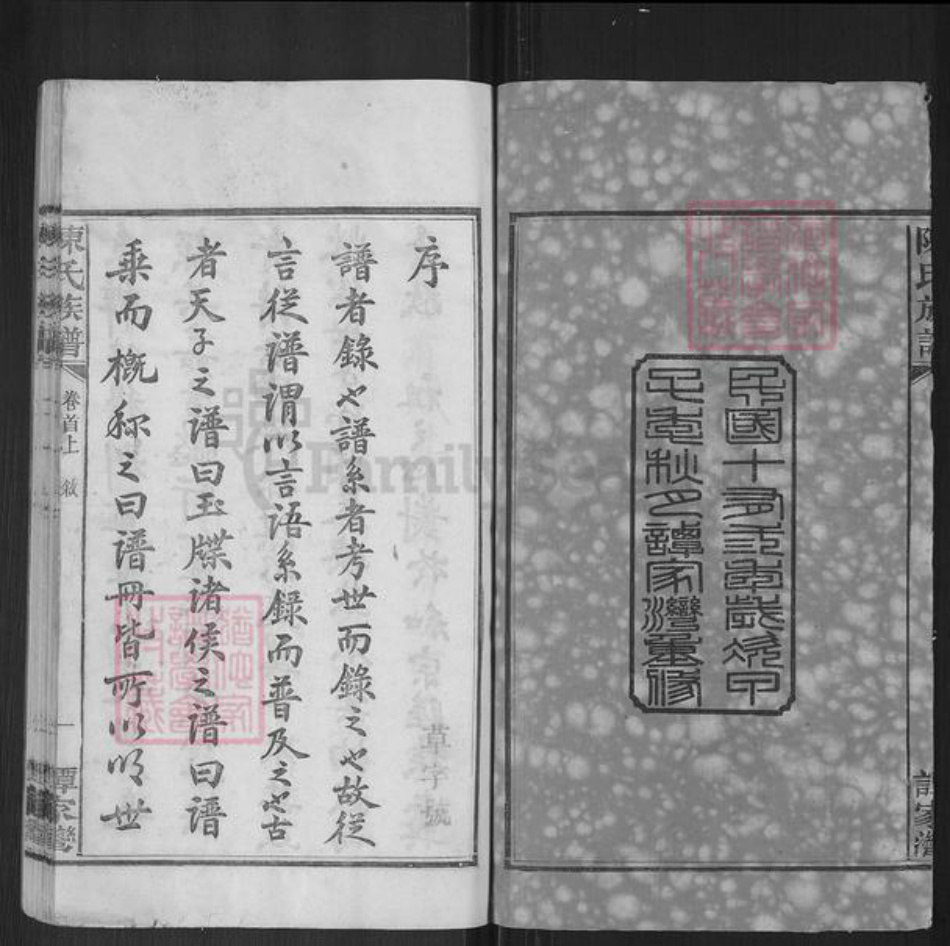 陳氏族譜
譚家灣
民國十有三年歲次甲
子孟秋之月譚家灣重修
序
譜者錄也譜系者考世而錄之也故從
言從譜謂以言語系錄而普及之也古
者天子之譜曰玉牒諸侯之譜曰譜
乘而概称之曰譜冊皆所以明世
草字號
陳氏族譜
卷首上
敘
一
譚家灣
FamilySearch